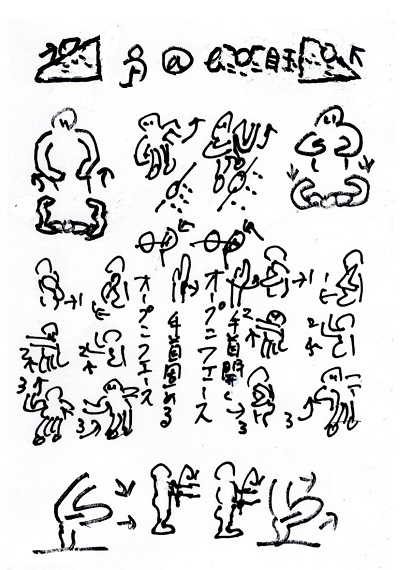 目玉
手首開く
オープンフェース
手首固める
オープンフェース
1
1
2
2
3
3
2
2
3
3